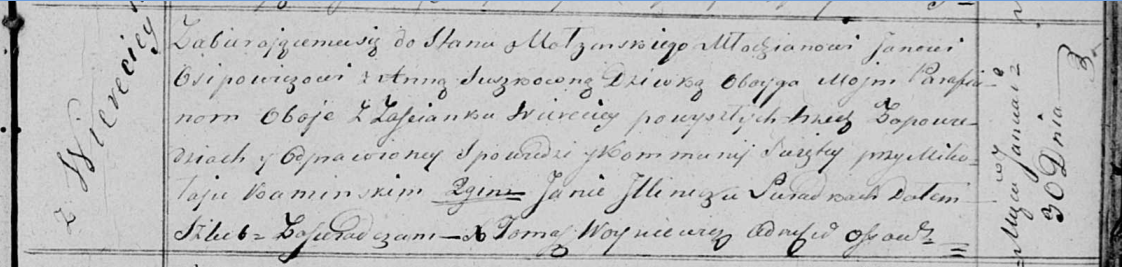 z Wiereciey
Zabierającemusię do Stanu Małzenskiego Młodzianowi Janowi
Osipowiczowi z Anną Suszkocong Dziewką Oboyga Moim Parafia-
nom Oboje z Zascianku Wierciey powyszłych trzech Zapowie-
dziach y Odprawioney Spowiedzi y Kommunij Swiętey przy Miko-
łaju Kaminskim 2gim Janie Swiadkach Dałem
Szlub = Zaswiadczam - X Tomasz Woyniewicz
Mca Januar =
30 Dnia
3